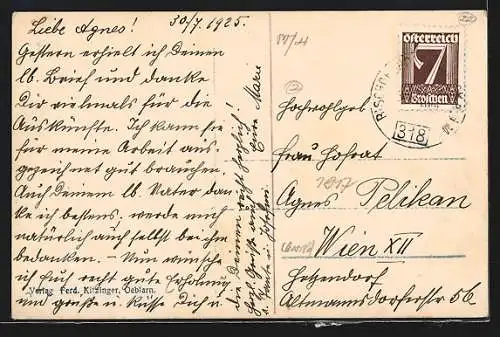 30/7. 1925.
Liebe Agnes!
Gestern erhielt ich Deinen
lb. Brief und danke
Dir vielmals für die
Auskünfte. Ich kann sie
für meine Arbeit aus-
gezeichnet gut brauchen.
Auch Deinem lb. Vater dan-
ke ich bestens. werde mich
natürlich auch selbst bei ihm
bedanken. – Nun wünsche
ich Euch recht gute Erholung
und grüße u. Küsse Dich u.
die Deinen recht herzlich!
Deine Marie
Verlag Ferd. Kitzinger, Oeblarn.
österreich
7
Groschen
318
Hochwohlgeb.
Frau Hofrat
Agnes Pelikan
Wien XII
Hetzendorf
Altmannsdorferstr 56.